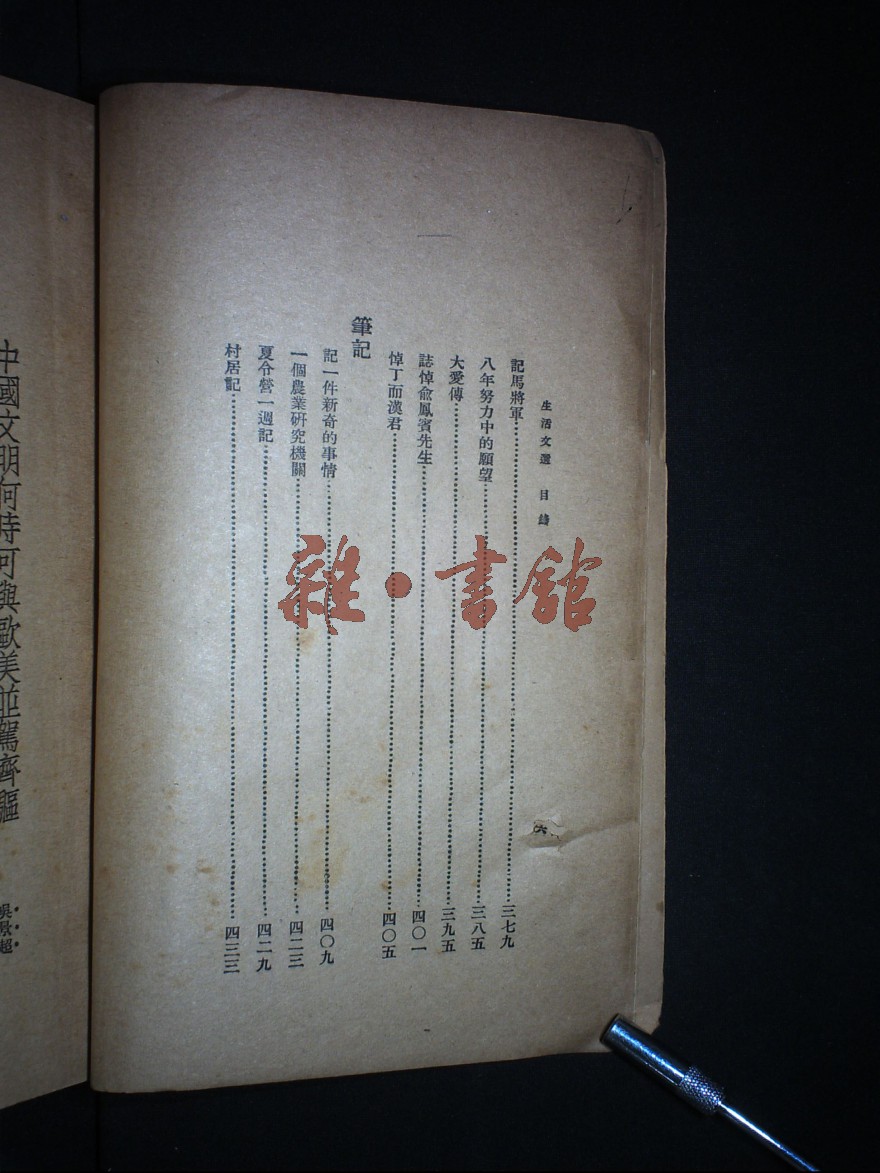 生活文選　目錄
六
記馬將軍……三七九
八年努力中的願望……三八五
大愛傳……三九五
誌悼俞鳳賓先生……四〇一
悼丁而漢君……四〇五
筆記
記一件新奇的事情……四〇九
一個農業研究機關……四二三
夏令營一週記……四二九
村居記……四三三
中國文明何時可與歐美並駕齊驅
雜·書館